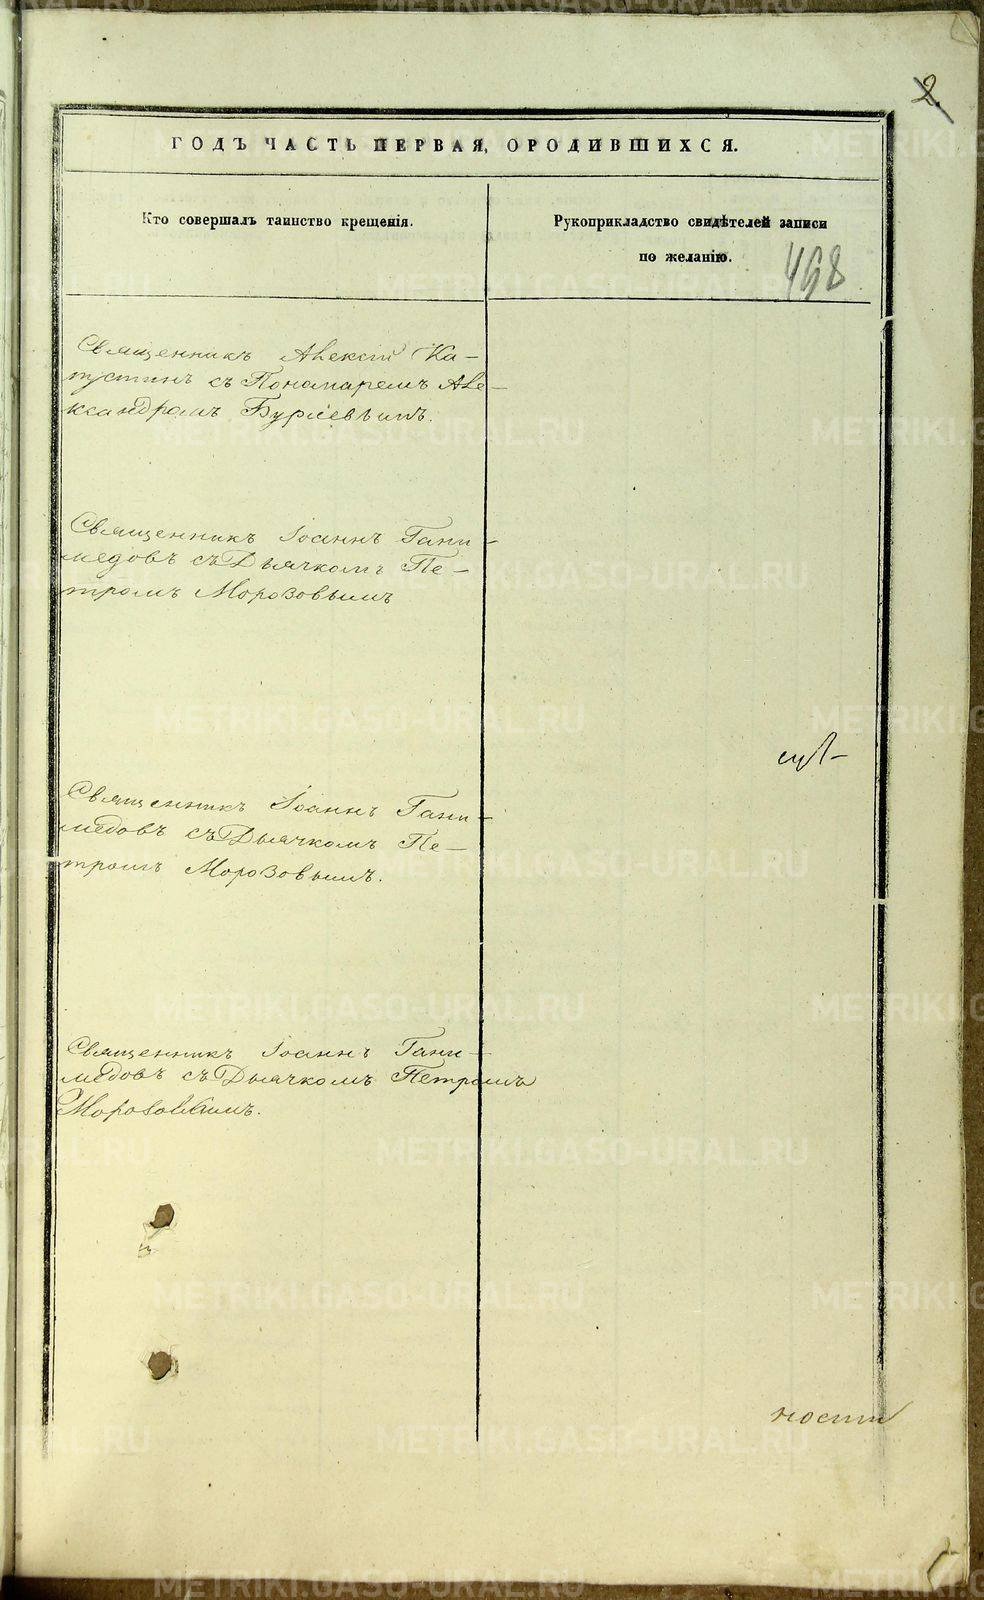 2.
ГОДЪ ЧАСТЬ ПЕРВАЯ, ОРОДИВШИХСЯ.
Кто совершалъ таинство крещенія.
Рукоприкладство свидѣтелей записи
по желанію.
468
Священникъ Алексій Ка-
пустинъ съ Пономаремъ Але-
ксандромъ
Священникъ Іоаннъ Гани-
медовъ съ Дьячкомъ Пе-
тромъ Морозовымъ
Священникъ Іоаннъ Гани-
медовъ съ Дьячкомъ Пе-
тромъ Морозовымъ.
Священникъ Іоаннъ Гани-
медовъ съ Дьячкомъ Петромъ
Морозовымъ.
METRIKI.GASO-URAL.RU